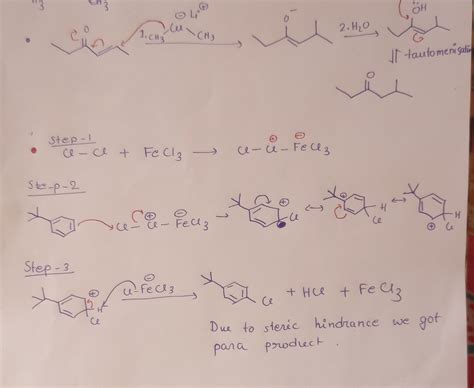 CH₃
O
⊖ Li⊕
1. CH₃ Cu CH₃
O⁻
2. H₂O
:ÖH
tautomerisation
O
Step-1
Cl-Cl + FeCl₃ → Cl-Cl⊕-FeCl₃⊖
Step-2
Cl-Cl⊕-FeCl₃⊖ → ⊕ Cl ↔ ⊕ H Cl ↔ H Cl ⊕
Step-3
⊕ H Cl Cl-FeCl₃⊖ → Cl + HCl + FeCl₃
Due to steric hindrance we got
para product.